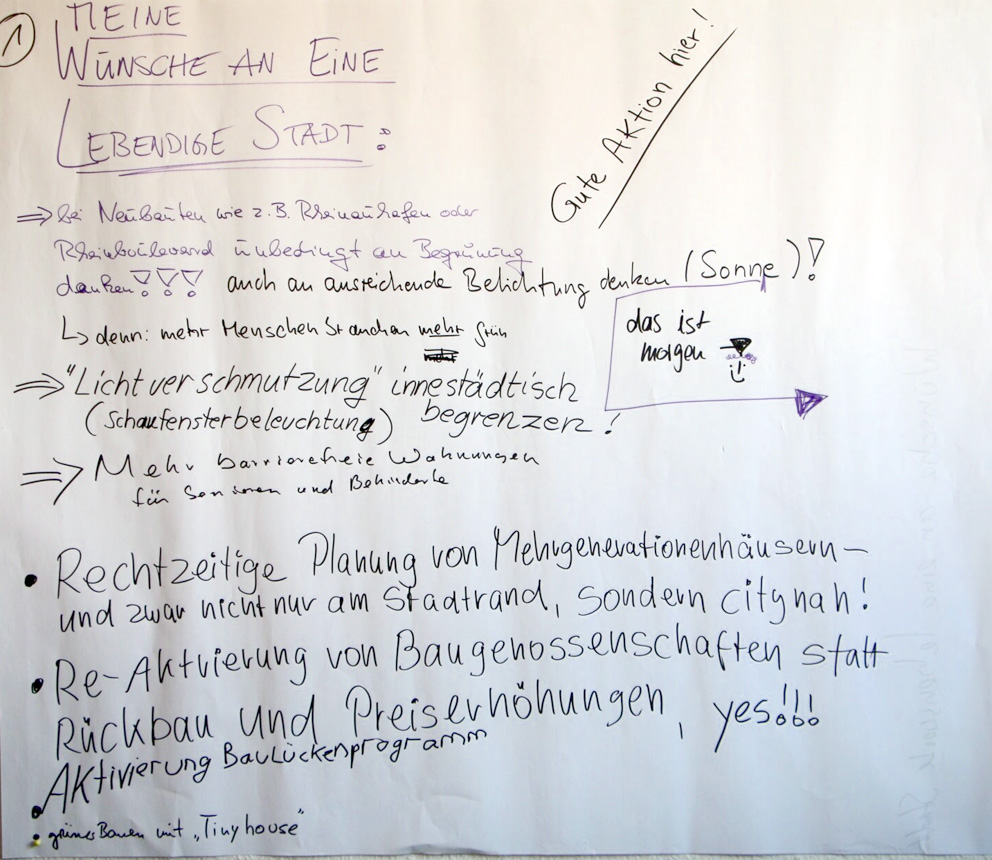 1
MEINE
WÜNSCHE AN EINE
LEBENDIGE STADT:
Gute Aktion hier!
⇒ bei Neubauten wie z.B. Rheinauhafen oder
Rheinboulevard unbedingt an Begrünung
denken!!! auch an ausreichende Belichtung denken (Sonne)!
↳ denn: mehr Menschen brauchen mehr grün
das ist
morgen
⇒ "Lichtverschmutzung" innestädtisch
(Schaufensterbeleuchtung) begrenzen!
⇒ Mehr barrierefreie Wohnungen
für Senioren und Behinderte
• Rechtzeitige Planung von Mehrgenerationenhäusern –
und zwar nicht nur am Stadtrand, sondern citynah!
• Re-Aktivierung von Baugenossenschaften statt
Rückbau und Preiserhöhungen, yes!!!
• Aktivierung Baulückenprogramm
• grünes Bauen mit „Tinyhouse"